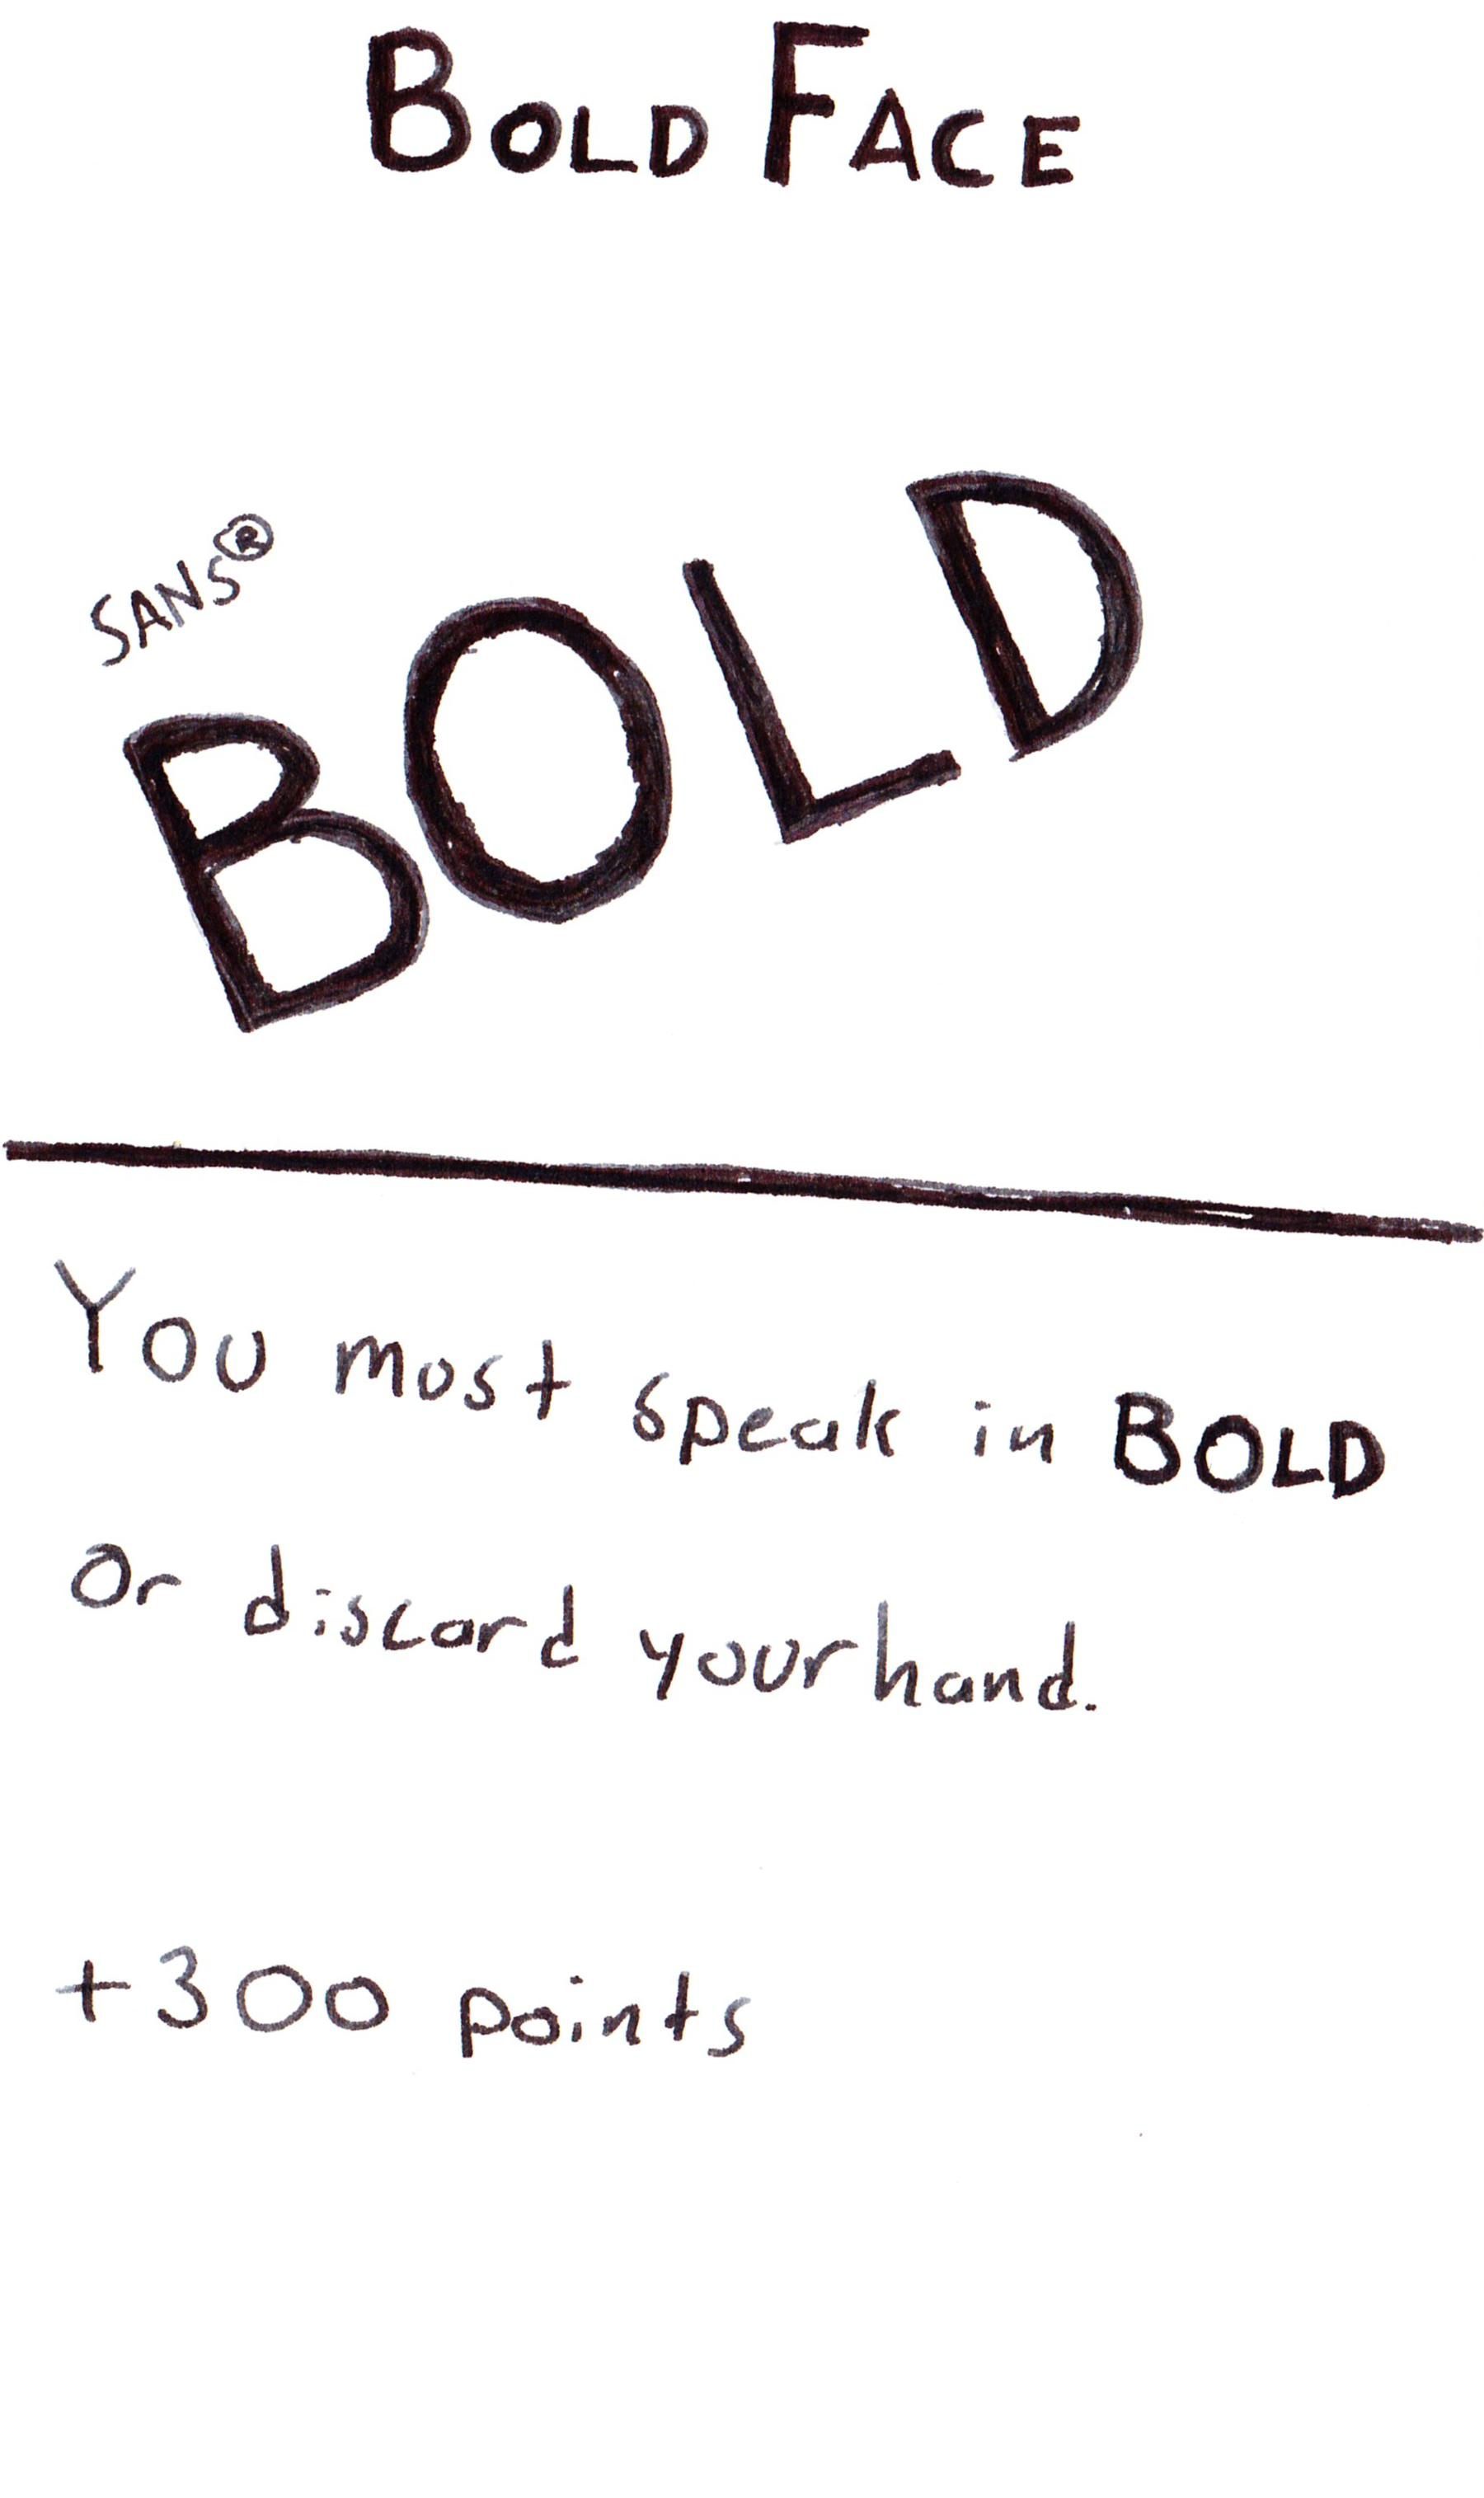 BOLD FACE
SANS®
BOLD
You most speak in BOLD
Or discard your hand.
+300 points